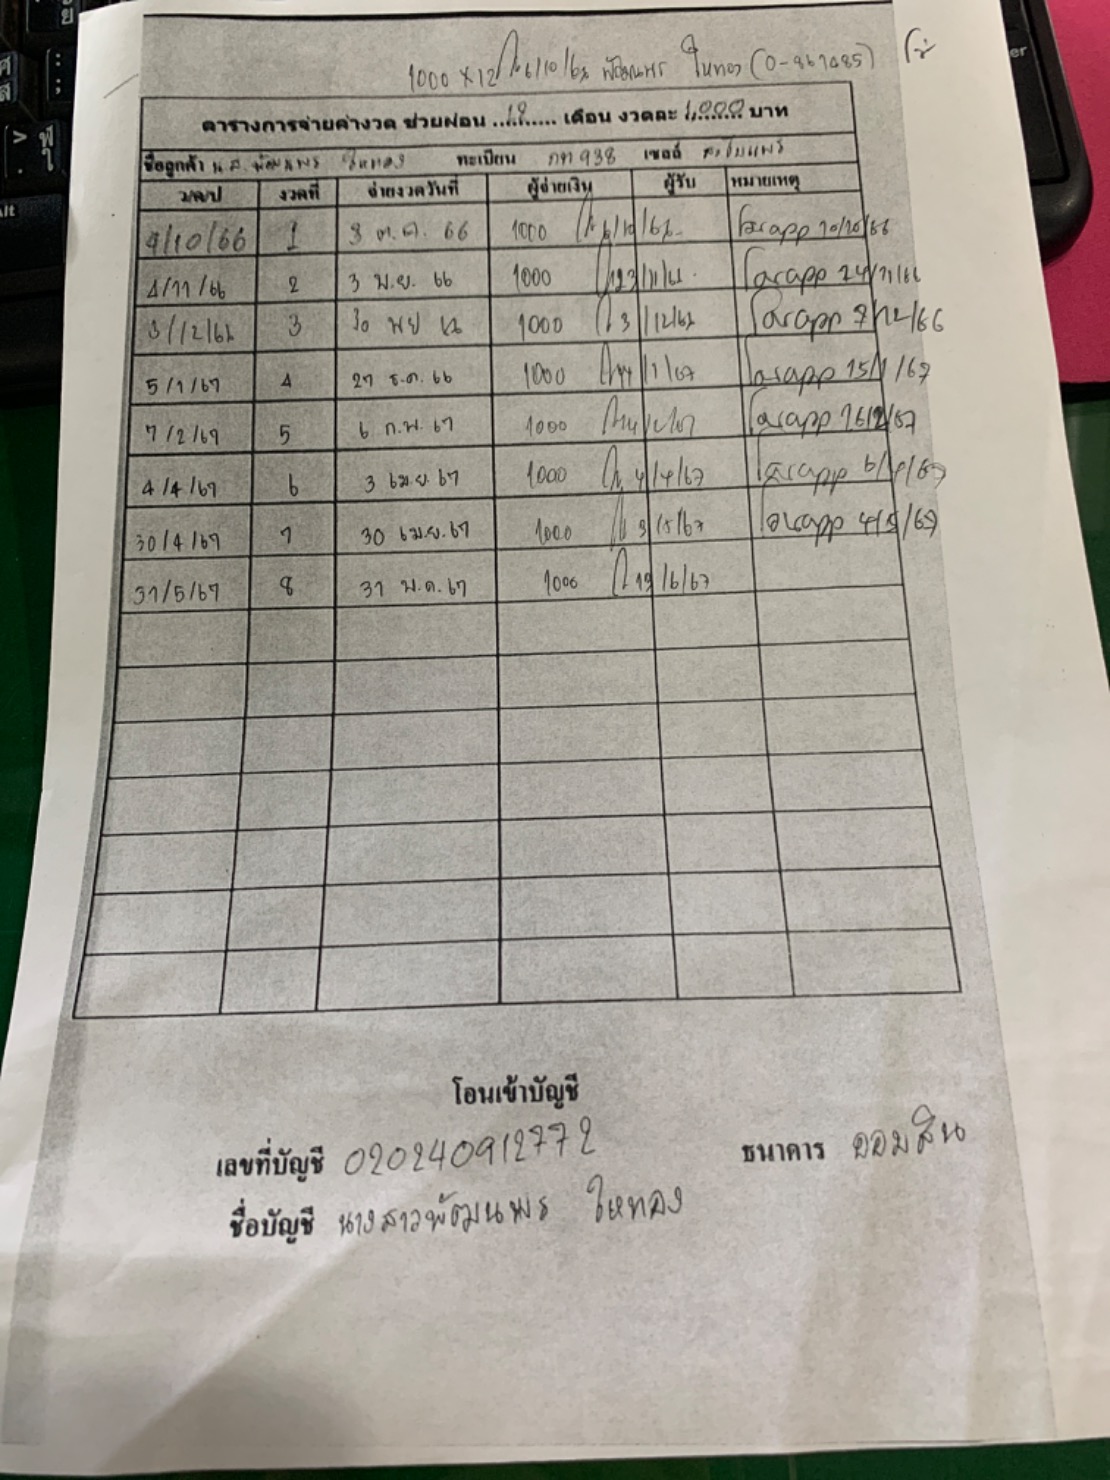 1000 x 12 6/10/66 พัฒนพร ใหทอง (0-867485)
ตารางการจ่ายค่างวด ช่วยผ่อน ...12... เดือน งวดละ 1,000 บาท
ชื่อลูกค้า น.ส. พัฒนพร ใหทอง ทะเบียน กท 938 เซลล์
ว/ด/ป งวดที่ จ่ายงวดวันที่ ผู้จ่ายเงิน ผู้รับ หมายเหตุ
4/10/66 1 3 ต.ค. 66 1000 6/10/66 โอนapp 10/10/66
4/11/66 2 3 พ.ย. 66 1000 โอนapp 24/11/66
3/12/66 3 30 พย 66 1000 3/12/66 โอนapp 7/12/66
5/1/67 4 27 ธ.ค. 66 1000 โอนapp 15/1/67
7/2/67 5 6 ก.พ. 67 1000 โอนapp 16/2/67
4/4/67 6 3 เม.ย. 67 1000 4/4/67 โอนapp 6/4/67
30/4/67 7 30 เม.ย. 67 1000 3/5/67 โอนapp 4/5/67
31/5/67 8 31 พ.ค. 67 1000 13/6/67
โอนเข้าบัญชี
เลขที่บัญชี 020240912772 ธนาคาร ออมสิน
ชื่อบัญชี นางสาวพัฒนพร ใหทอง